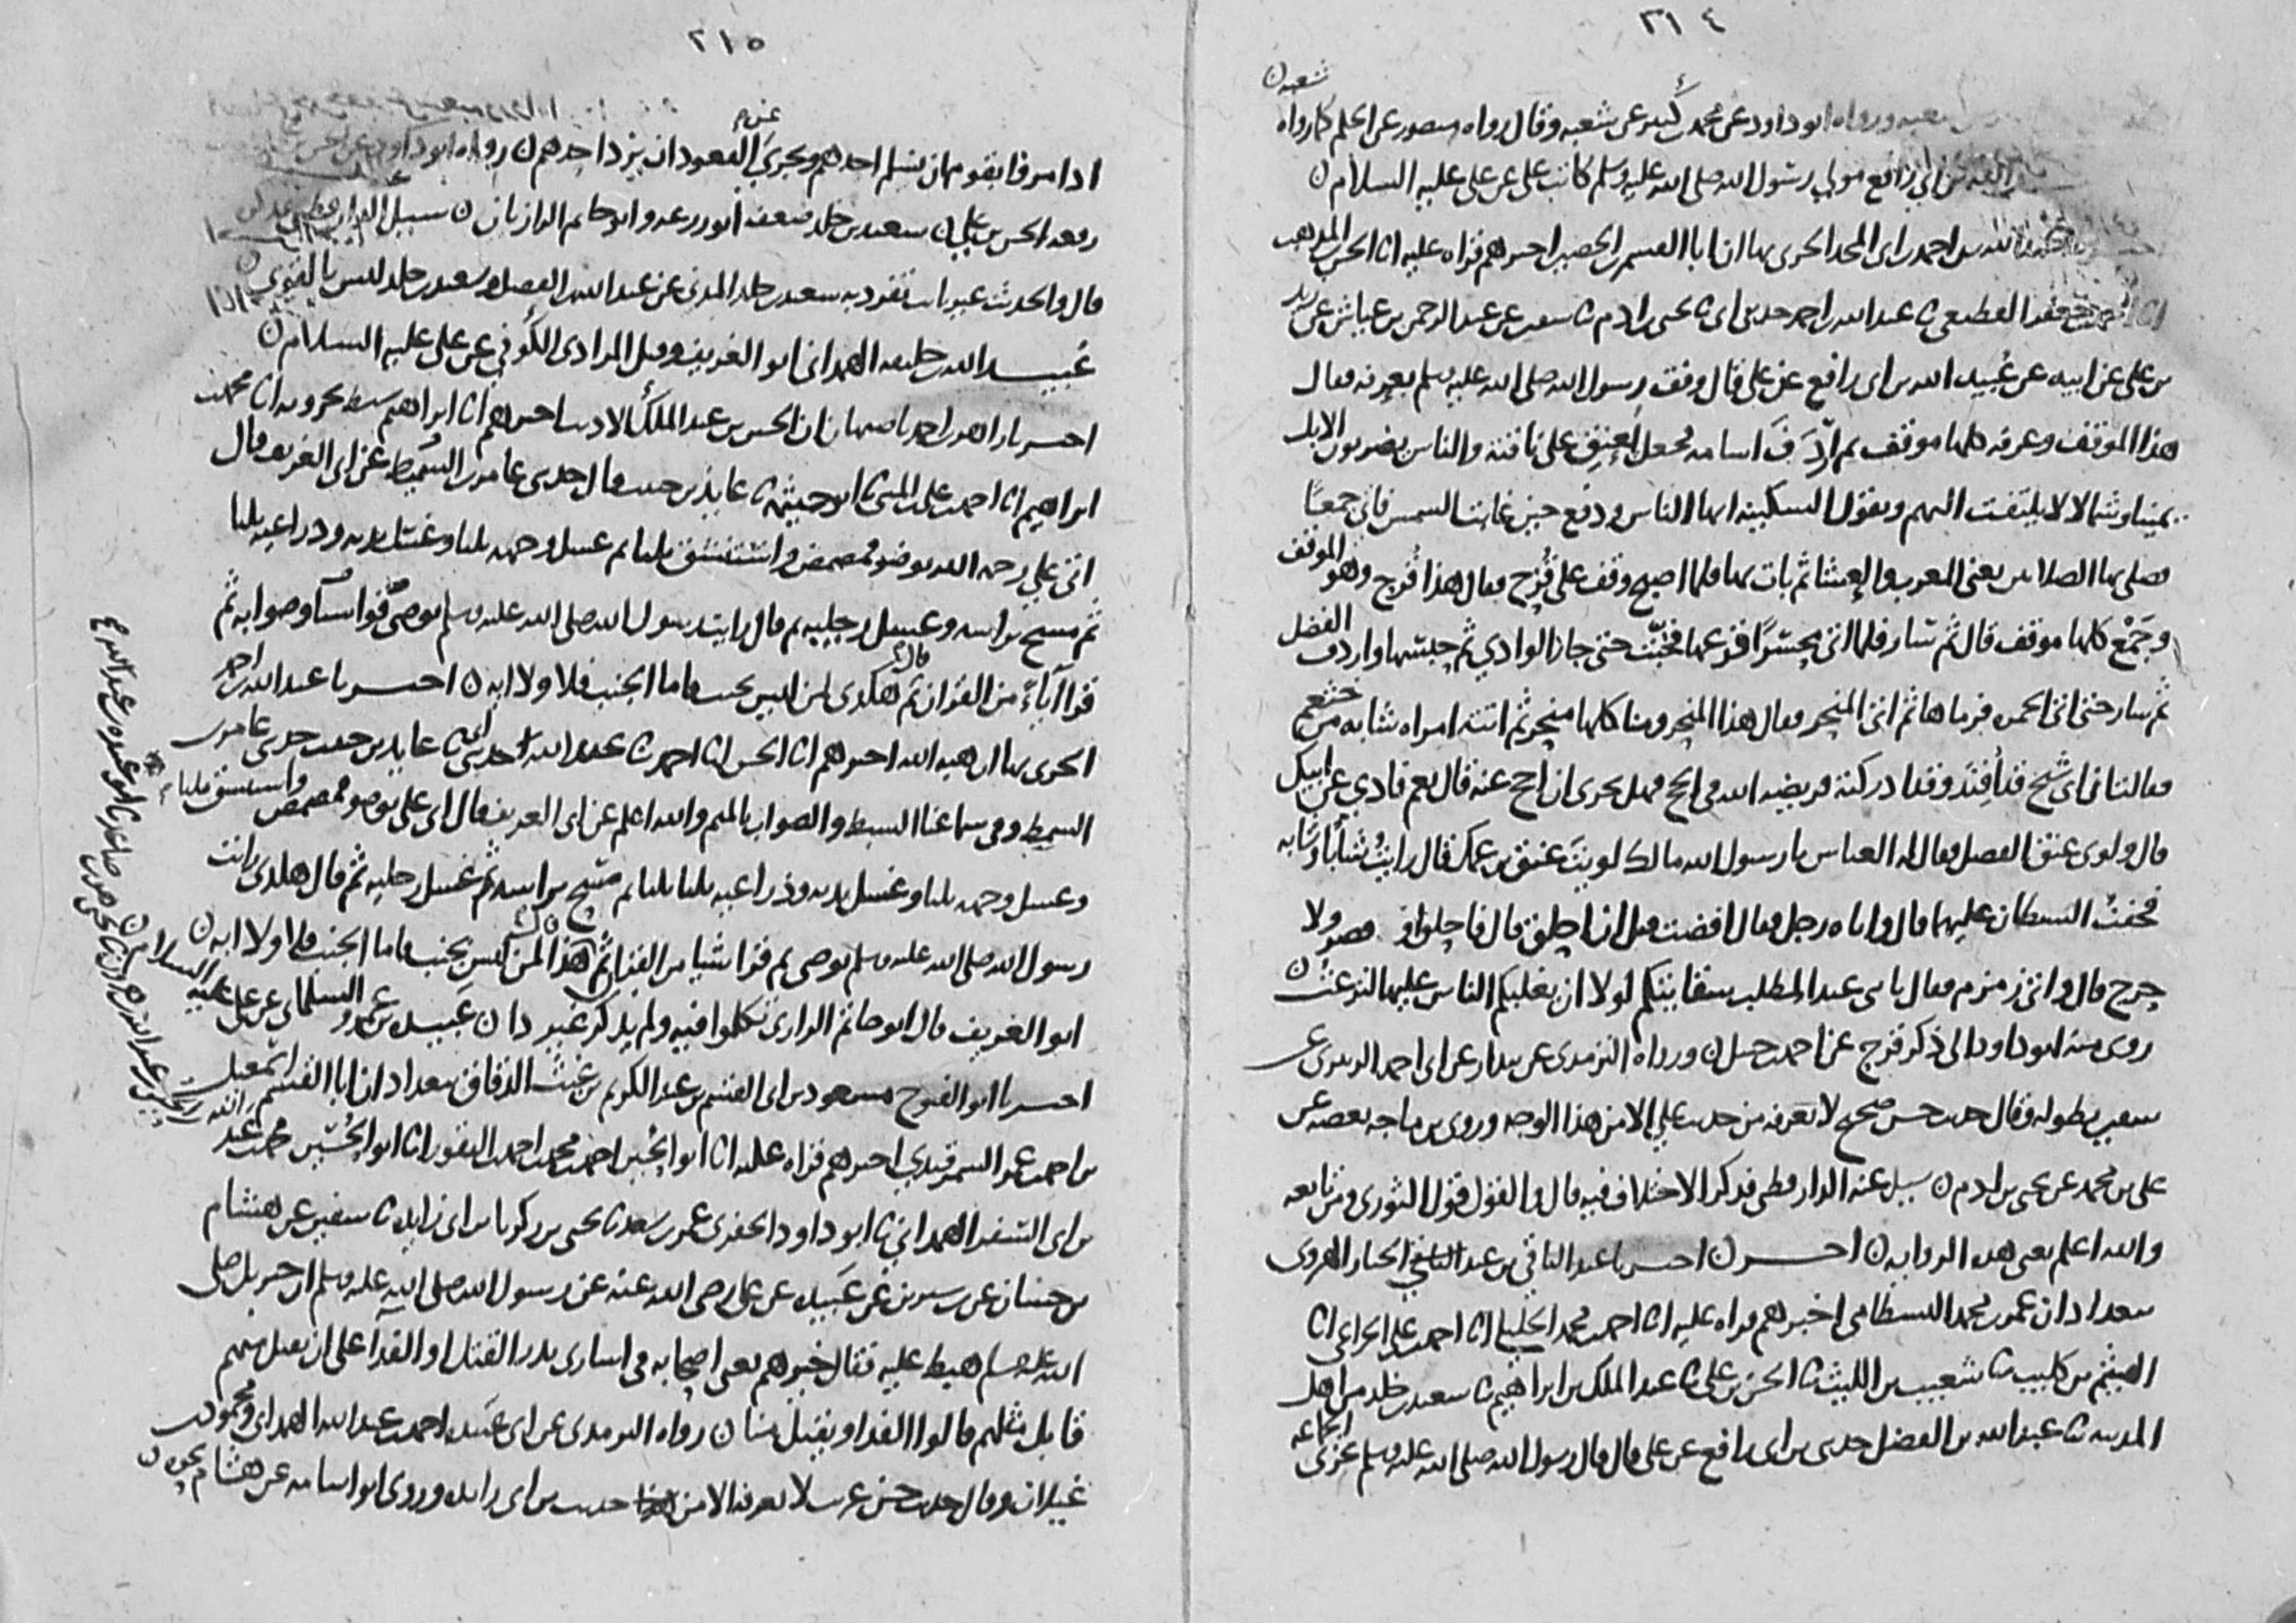 ٢١٤
شعبه ن
ورواه ابو داود عن محمد بن كثير عن شعبه وقال رواه منصور عن الحكم كما رواه
عن ابي رافع مولي رسول الله صلى الله عليه وسلم كاتب علي عن علي عليه السلام ن
عبد الله بن احمد بن ابي المجد الحربي بها ان ابا القسم بن الحصين اخبرهم قراه عليه انا الحسن بن المذهب
جعفر القطيعي ثنا عبد الله بن احمد حدثني ابي ثنا يحيى بن ادم ثنا سفين عن عبد الرحمن بن عياش عن زيد
بن علي عن ابيه عن عبيد الله بن ابي رافع عن علي قال وقف رسول الله صلى الله عليه وسلم بعرفه فقال
هذا الموقف وعرفه كلها موقف ثم اردف اسامه فجعل يعنق على ناقته والناس يضربون الابل
يمينا وشمالا لا يلتفت اليهم ويقول السكينه ايها الناس ودفع حين غابت الشمس فاتى جمعا
فصلى بها الصلاتين يعني المغرب والعشا ثم بات بها فلما اصبح وقف على قزح فقال هذا قزح وهو الموقف
وجمع كلها موقف قال ثم سار فلما اتى محسرا قرعها فخبت حتى جاز الوادي ثم حبسها واردف الفضل
ثم سار حتى اتى الجمره فرماها ثم اتى المنحر فقال هذا المنحر ومنا كلها منحر ثم اتته امراه شابه من خثعم
فقالت ان ابي شيخ قد افند وقد ادركته فريضه الله في الحج فهل يجزي ان احج عنه قال نعم فادي عن ابيك
قال ولوى عنق الفضل فقال له العباس يا رسول الله مالك لويت عنق بن عمك قال رايت شابا وشابه
فخفت الشيطان عليهما قال واتاه رجل فقال افضت قبل ان احلق قال فاحلق او قصر ولا
حرج قال واتى زمزم فقال يا بني عبد المطلب سقايتكم لولا ان يغلبكم الناس عليها لنزعت ن
روى منه ابو داود الى ذكر قزح عن احمد بن حنبل ن ورواه الترمذي عن بندار عن ابي احمد الزبيري عن
سفين بطوله وقال حديث حسن صحيح لا نعرفه من حديث علي الا من هذا الوجه وروى بن ماجه بعضه عن
علي بن محمد عن يحيى بن ادم ن سيل عنه الدارقطني فذكر الاختلاف فيه قال والقول قول الثوري ومن تابعه
والله اعلم يعني هذه الروايه ن اخبرنا عبد الباقي بن عبد الجبار الهروي
ببغداد ان عمر بن محمد البسطامي اخبرهم قراه عليه انا احمد بن محمد الخليلي انا احمد بن علي الخزاعي انا
الهيثم بن كليب ثنا شعيب بن الليث ثنا الحسن بن علي ثنا عبد الملك بن ابراهيم ثنا سعيد بن خلد من اهل
المدينه ثنا عبد الله بن الفضل حدثني بن ابي رافع عن علي قال قال رسول الله صلى الله عليه وسلم يجزي عن الجماعه
٢١٥
اذا مروا بقوم ان يسلم احدهم ويجزي عن القعود ان يرد احدهم ن رواه ابو داود عن الحسن بن علي
رفعه الحسن بن علي ن سعيد بن خلد ضعفه ابو زرعه وابو حاتم الرازيان ن سيل الدارقطني عنه
قال والحديث غير ثابت تفرد به سعيد بن خلد المدني عن عبد الله بن الفضل وسعيد بن خلد ليس بالقوي ن
عبيد الله بن خليفه الهمداني ابو الغريف وقيل المرادي الكوفي عن علي عليه السلام ن
اخبرنا زاهر بن احمد باصبهان ان الحسين بن عبد الملك الاديب اخبرهم انا ابراهيم سبط بحرويه انا محمد بن
ابراهيم انا احمد بن علي بن المثنى ثنا ابو خيثمه ثنا عايذ بن حبيب قال حدثني عامر بن السمط عن ابي الغريف قال
اتى علي رحمه الله بوضو فمضمض واستنشق ثلثا ثم غسل وجهه ثلثا وغسل يديه وذراعيه ثلثا
ثم مسح براسه وغسل رجليه ثم قال رايت رسول الله صلى الله عليه وسلم توضى ثم
قرا آيا من القران ثم قال هكذى لمن ليس بجنب فاما الجنب فلا ولا ايه ن اخبرنا عبد الله بن احمد
الحربي بها ان هبه الله اخبرهم انا الحسن انا احمد ثنا عبد الله حدثني ابي ثنا عايذ بن حبيب حدثني عامر بن
السمط وفي سماعنا السبط والصواب بالميم والله اعلم عن ابي الغريف قال اتي علي بوضو فمضمض واستنشق ثلثا
وغسل وجهه ثلثا وغسل يديه وذراعيه ثلثا ثلثا ثم مسح براسه ثم غسل رجليه ثم قال هكذى رايت
رسول الله صلى الله عليه وسلم توضى ثم قرا شيا من القران ثم قال هذا لمن ليس بجنب فاما الجنب فلا ولا ايه ن
ابو الغريف قال ابو حاتم الرازي تكلموا فيه ولم يذكر غير ذا ن عبيده بن عمرو السلماني عن علي عليه السلام ن
اخبرنا ابو الفتوح مسعود بن ابي القسم بن عبد الكريم بن غيث الدقاق ببغداد ان ابا القسم اسمعيل
بن احمد بن عمر السمرقندي اخبرهم قراه عليه انا ابو الحسين احمد بن محمد بن احمد بن النقور انا ابو الحسين محمد بن عبد
بن ابي السفر الهمداني ثنا ابو داود الحفري عمر بن سعد ثنا يحيى بن زكريا بن ابي زايده ثنا سفين عن هشام
بن حسان عن بن سيرين عن عبيده عن علي رضى الله عنه عن رسول الله صلى الله عليه وسلم ان جبريل صلى
الله عليه وسلم هبط عليه فقال خيرهم يعني اصحابه في اسارى بدر القتل او الفدا على ان يقتل منهم
قابل مثلهم قالوا الفدا ويقتل منا ن رواه الترمذي عن ابي عبيده احمد بن عبد الله الهمداني ومحمود بن
غيلان وقال حديث حسن غريب لا نعرفه الا من حديث بن ابي زايده وروى ابو اسامه عن هشام نحوه ن